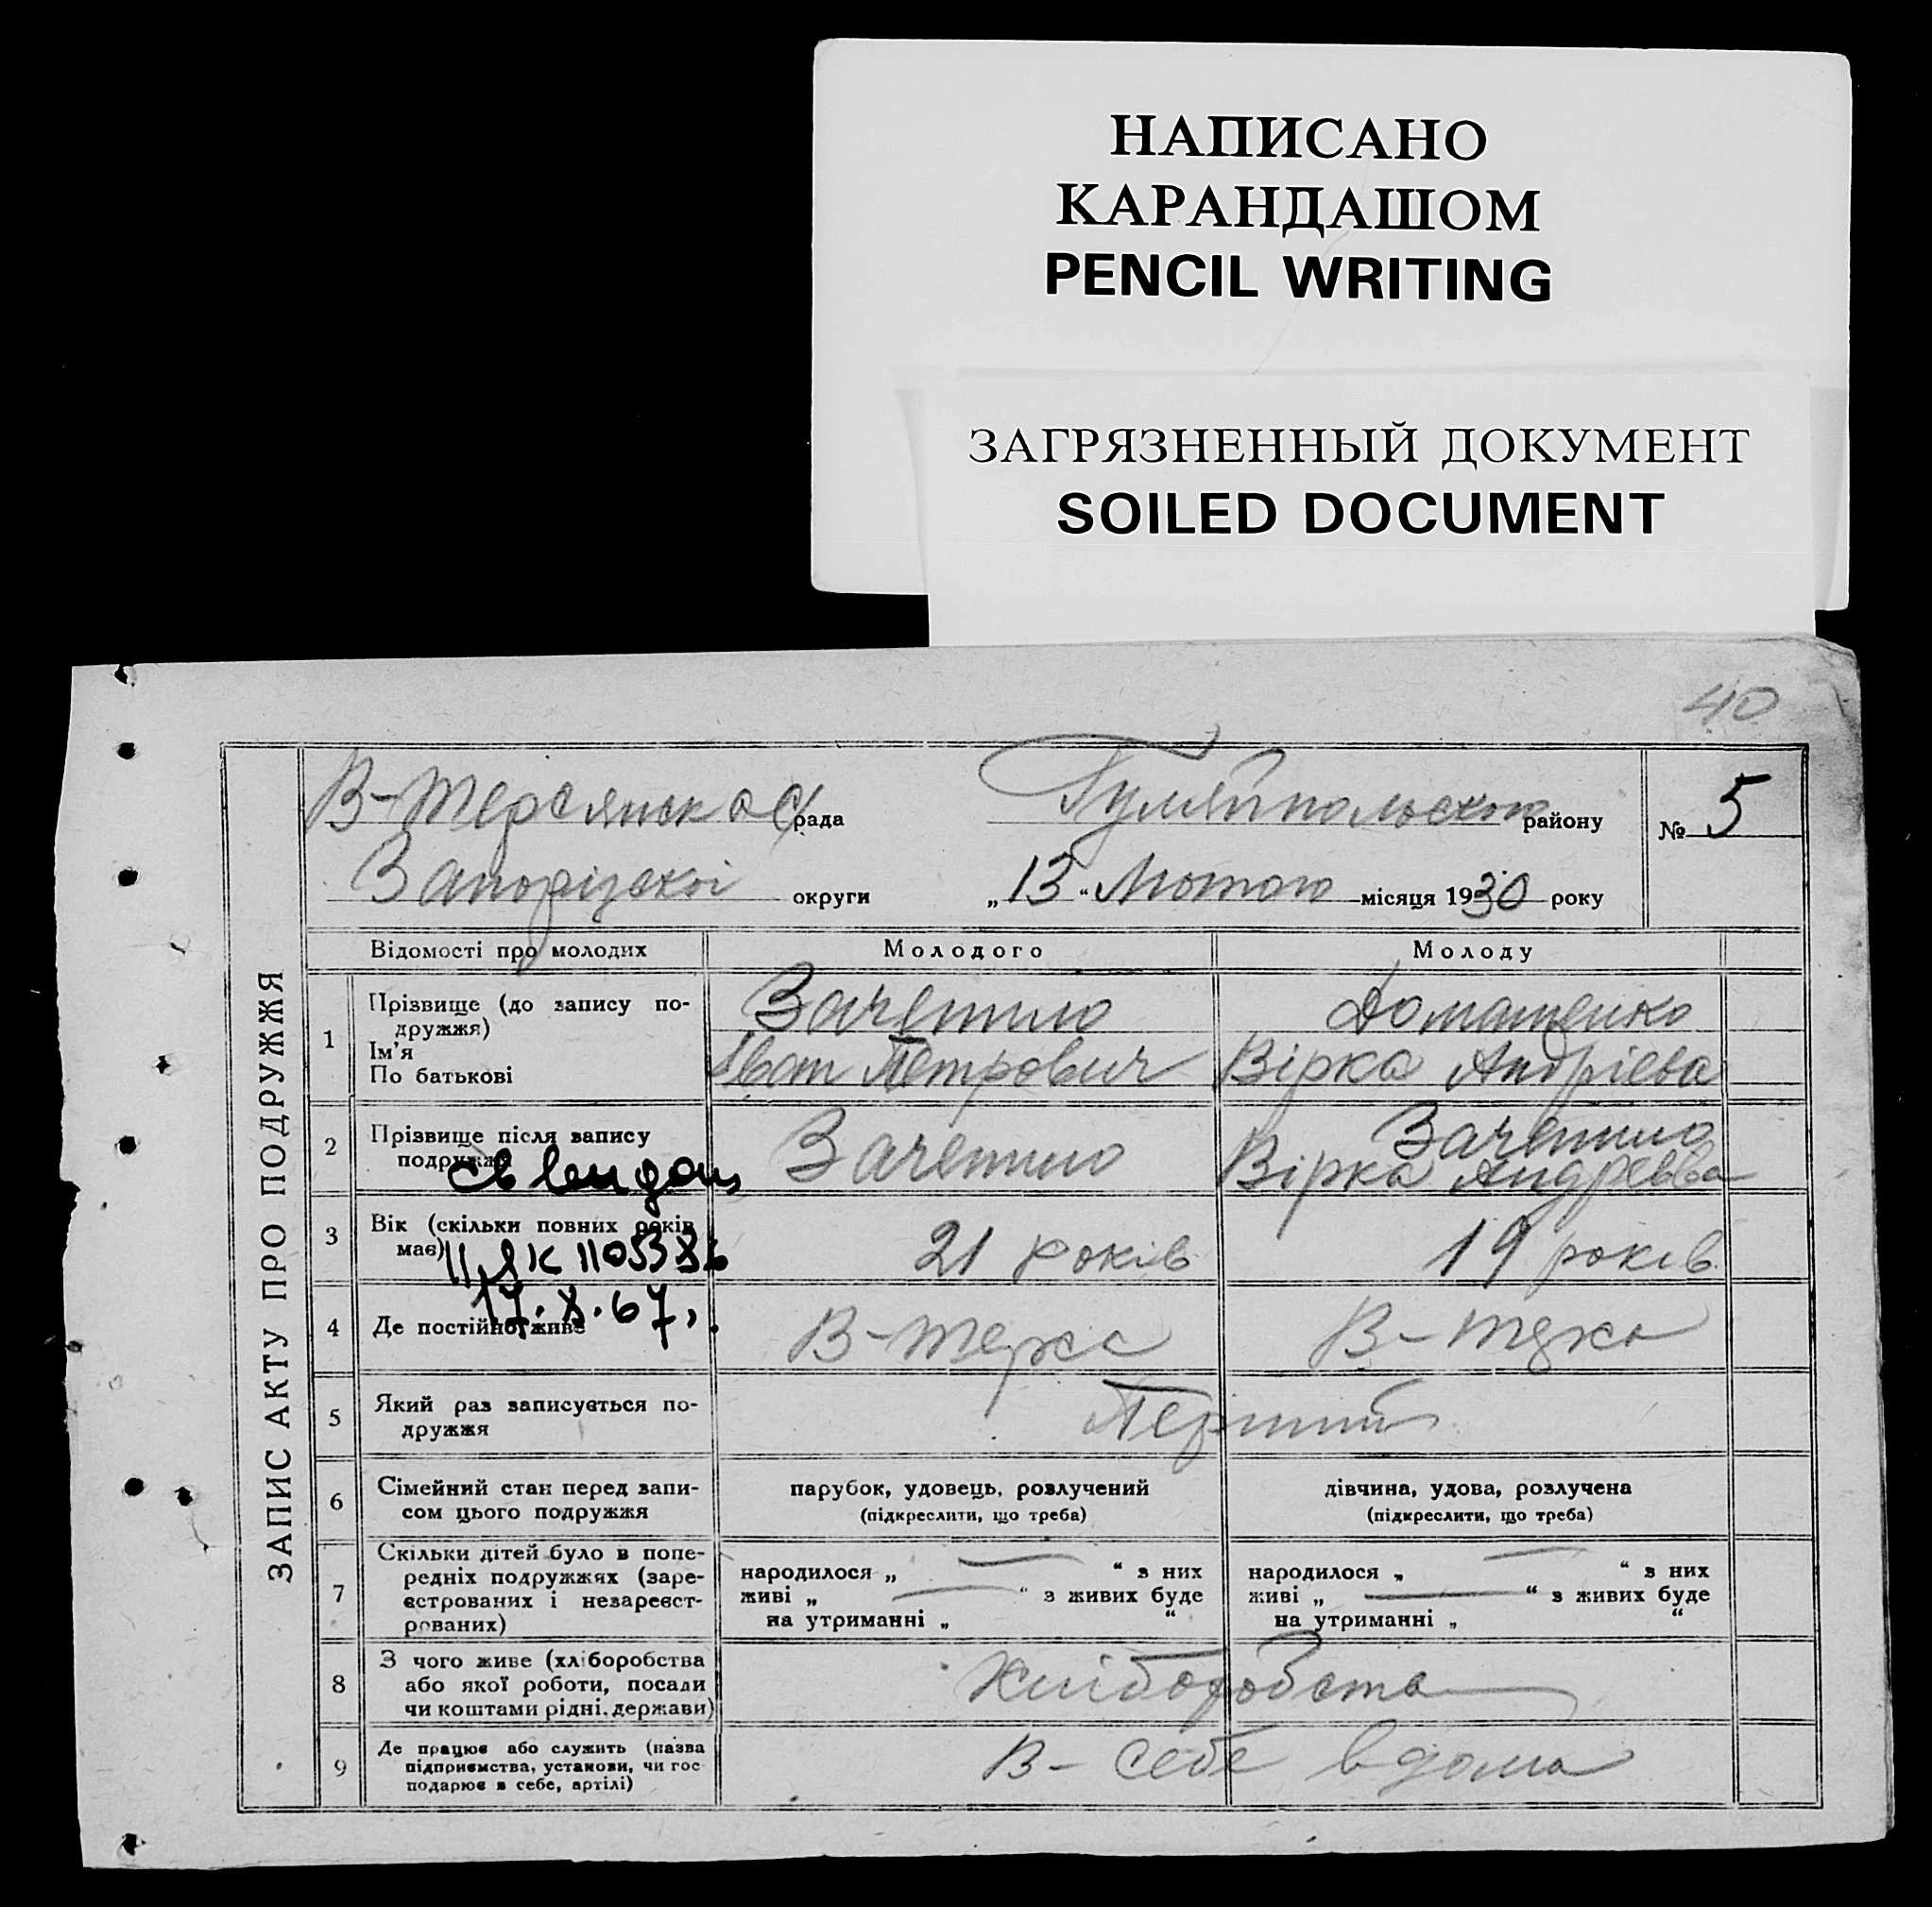 НАПИСАНО
КАРАНДАШОМ
PENCIL WRITING
ЗАГРЯЗНЕННЫЙ ДОКУМЕНТ
SOILED DOCUMENT
40
ЗАПИС АКТУ ПРО ПОДРУЖЖЯ
В-Терсянска С/рада Гуляйпольского району № 5
Запорізскої округи „13“ Лютого місяця 1930 року
Відомості про молодих Молодого Молоду
1 Прізвище (до запису по-
дружжя)
Ім'я
По батькові
Зачепило
Іван Петрович
Домашенко
Вірка Андрієва
2 Прізвище після запису
подружжя
Зачепило
Зачепило
Вірка Андреєва
св видано
3 Вік (скільки повних років
має)
21 років
19 років
II ЯК 1105386
17.X.67.
4 Де постійно живе
В-Терса
5 Який раз записується по-
дружжя
Перший
6 Сімейний стан перед запи-
сом цього подружжя
парубок, удовець, розлучений
(підкреслити, що треба)
дівчина, удова, розлучена
(підкреслити, що треба)
7 Скільки дітей було в попе-
редніх подружжях (заре-
єстрованих і незареєст-
рованих)
народилося „ — “ з них
живі „ — “ з живих буде
на утриманні „ “
народилося „ — “ з них
живі „ — “ з живих буде
на утриманні „ “
8 З чого живе (хліборобства
або якої роботи, посади
чи коштами рідні, держави)
Хліборобства
9 Де працює або служить (назва
підприємства, установи, чи гос
подарює в себе, артілі)
В- себе вдома